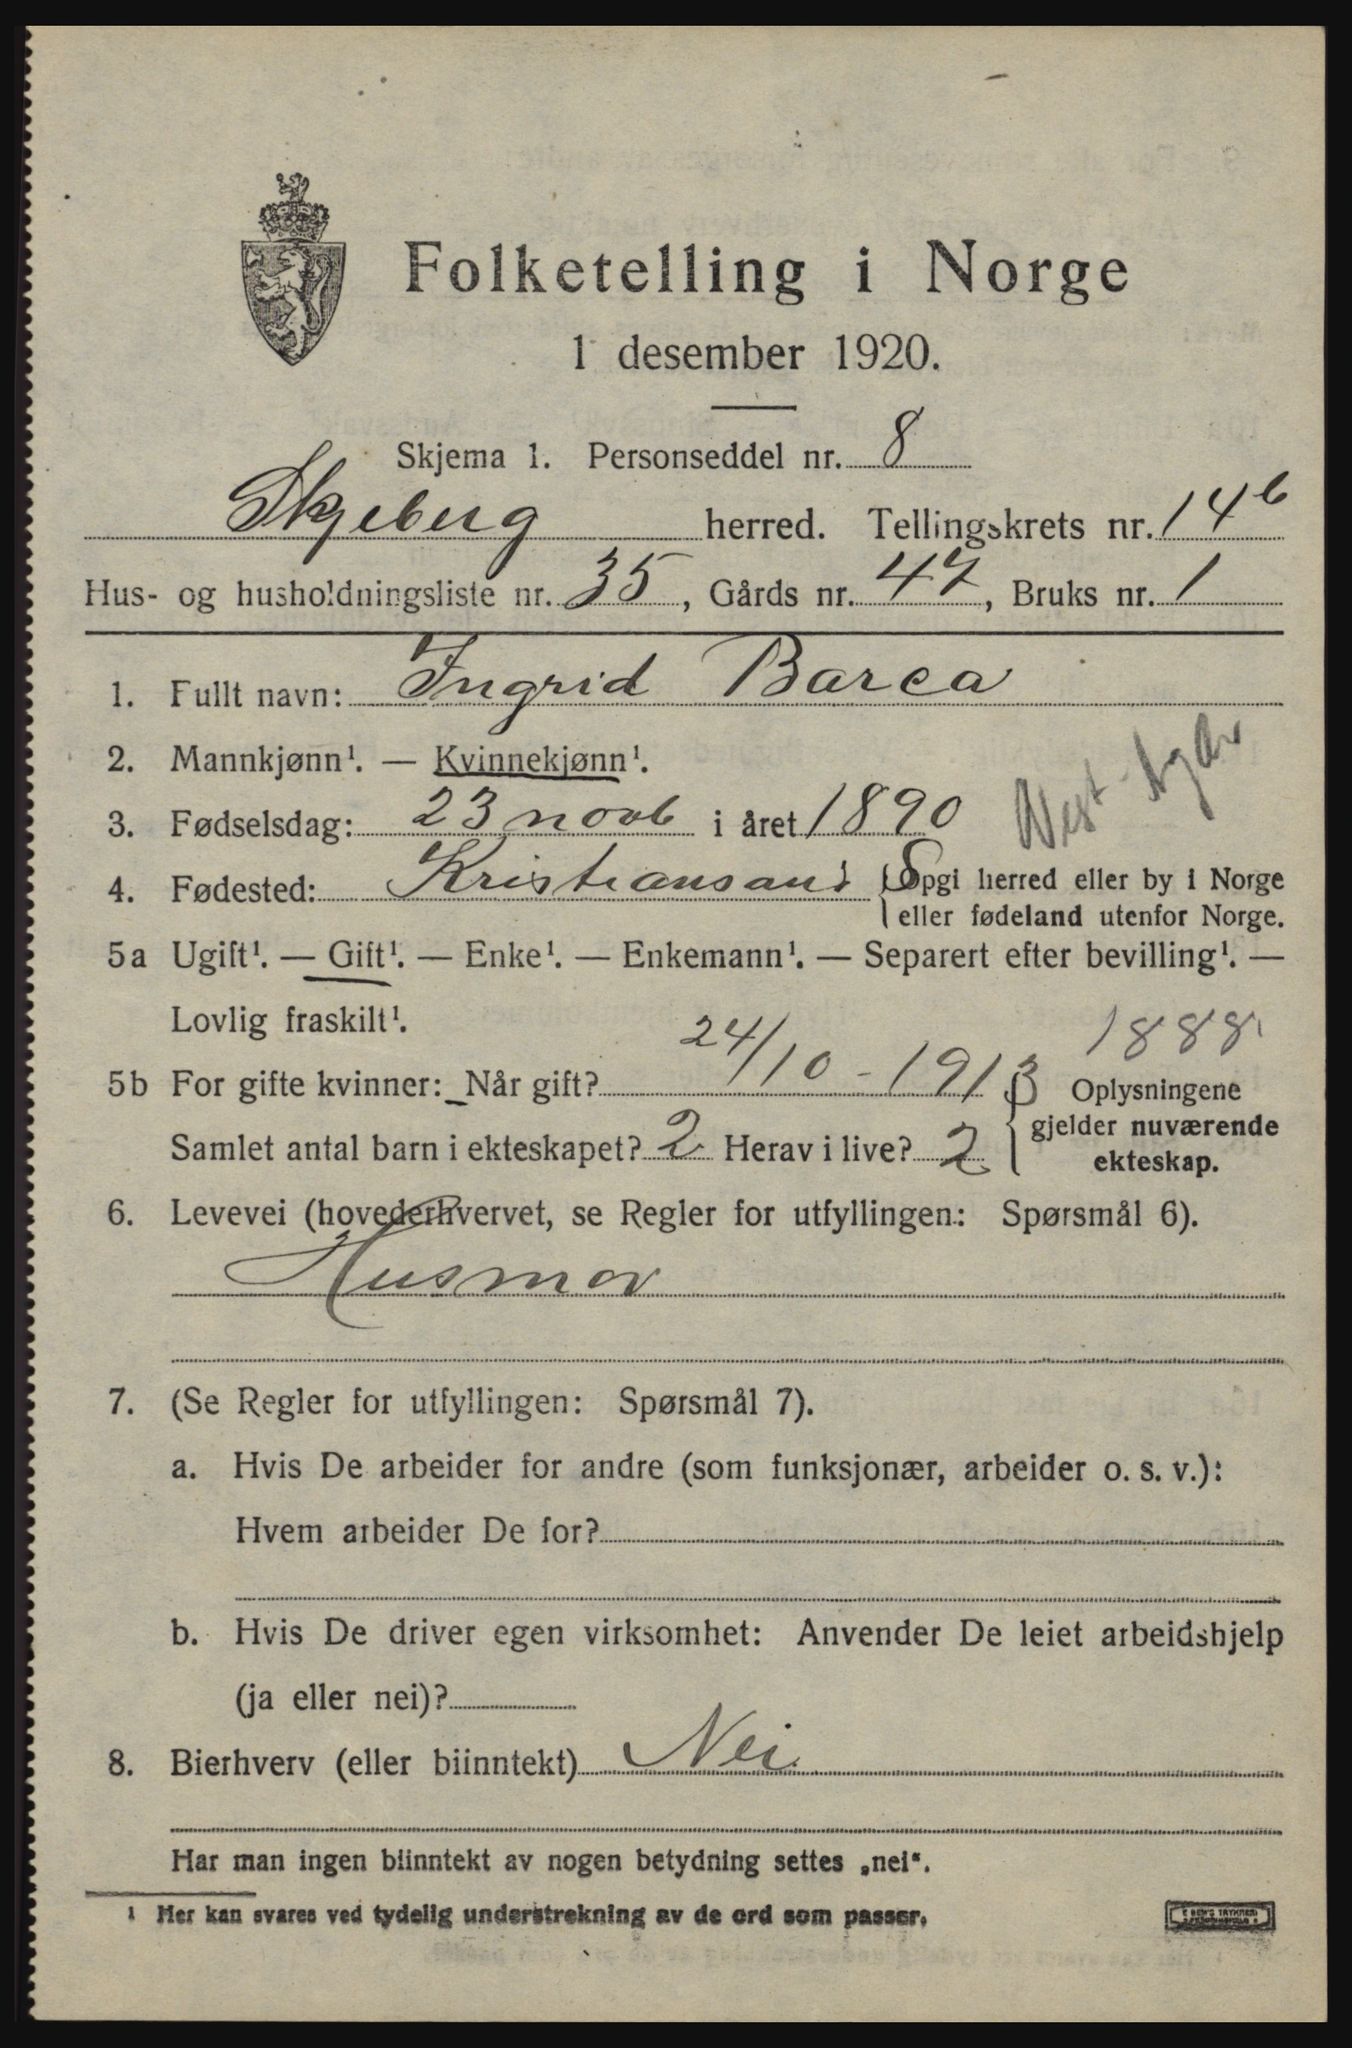 Folketelling i Norge
1 desember 1920.
Skjema 1. Personseddel nr. 8
Skjeberg herred. Tellingskrets nr. 14 b
Hus- og husholdningsliste nr. 35, Gårds nr. 47, Bruks nr. 1
1. Fullt navn: Ingrid Barca
2. Mannkjønn¹. — Kvinnekjønn¹.
Vest-Agder
3. Fødselsdag: 23 novb i året 1890
4. Fødested: Kristiansand S { Opgi herred eller by i Norge
eller fødeland utenfor Norge.
5a Ugift¹. — Gift¹. — Enke¹. — Enkemann¹. — Separert efter bevilling¹. —
Lovlig fraskilt¹.
1888
5b For gifte kvinner: Når gift? 24/10 - 1913 { Oplysningene
gjelder nuværende
Samlet antal barn i ekteskapet? 2 Herav i live? 2
ekteskap.
6. Levevei (hovederhvervet, se Regler for utfyllingen: Spørsmål 6).
Husmor
7. (Se Regler for utfyllingen: Spørsmål 7).
a. Hvis De arbeider for andre (som funksjonær, arbeider o. s. v.):
Hvem arbeider De for?
b. Hvis De driver egen virksomhet: Anvender De leiet arbeidshjelp
(ja eller nei)?
8. Bierhverv (eller biinntekt) Nei
Har man ingen biinntekt av nogen betydning settes „nei“.
¹ Her kan svares ved tydelig understrekning av de ord som passer.